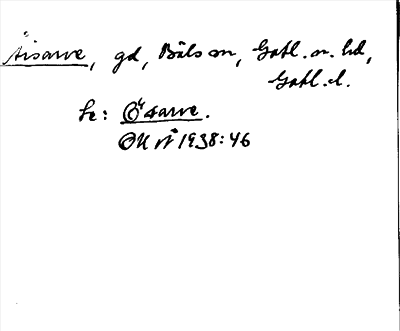 Äisarve, gd, Bäls sn, Gotl. n. hd,
Gotl. l.
Se: Ösarve.
OUÅ 1938:46